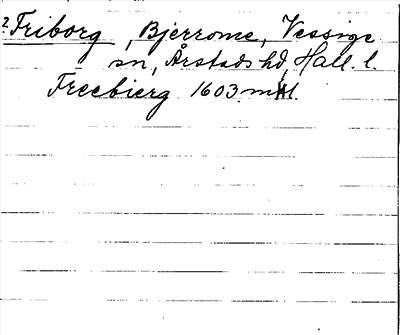 2. Friborg, Bjerrome, Vessige
sn, Årstads hd, Hall. l.
Freebierg 1603 mtl.